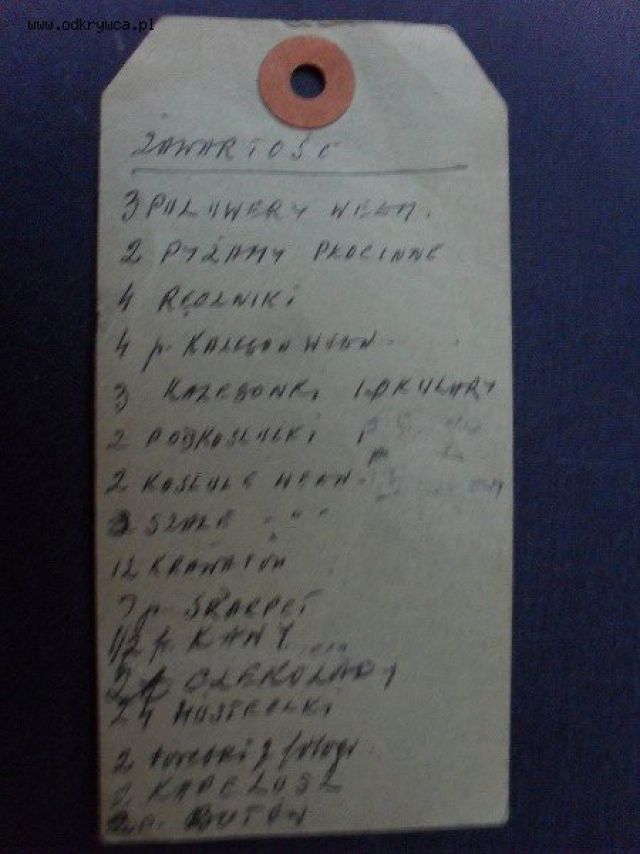 www.odkrywca.pl
ZAWARTOŚĆ
3 PULOWERY WEŁN.
2 PYŻAMY PŁÓCINNE
4 RĘCZNIKI
4 p. KALESON WEŁN.
3 KALESONKI 1. OKULARY
2 PODKOSZULKI
2 KOSZULE WEŁN.
SZALE " " "
12 KRAWATÓW
7 p. SKARPET
1/2 f. KAWY
CZEKOLADY
24
2 torebki z fotogr.
KAPELUSZ
2 p. BUTÓW